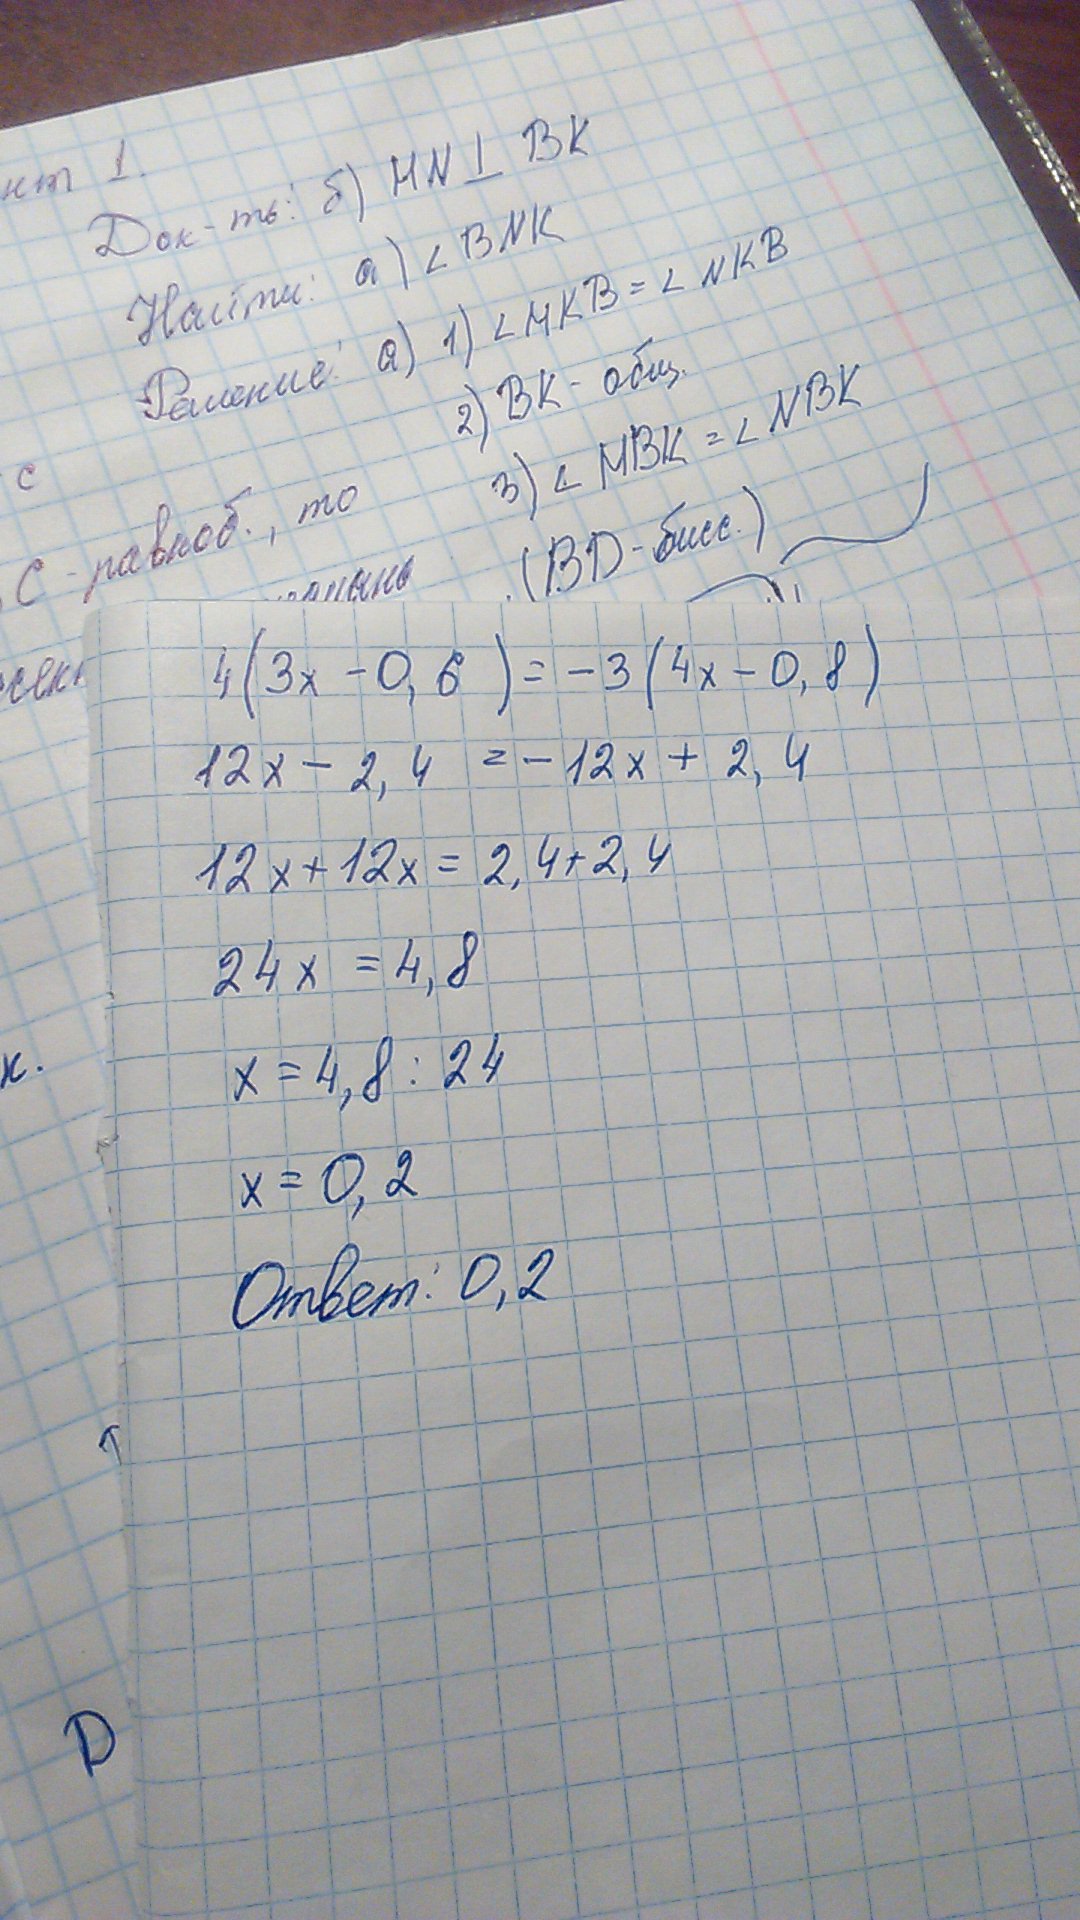 нт 1.
Док-ть: б) MN⊥BK
Найти: а) ∠BNK
Решение: а) 1) ∠MKB = ∠NKB
2) BK - общ.
3) ∠MBK = ∠NBK
(BD-бисс.)
с
С - равноб., то
4(3x - 0,6) = -3(4x - 0,8)
12x - 2,4 = -12x + 2,4
12x + 12x = 2,4 + 2,4
24x = 4,8
x = 4,8 : 24
x = 0,2
Ответ: 0,2
к.
D